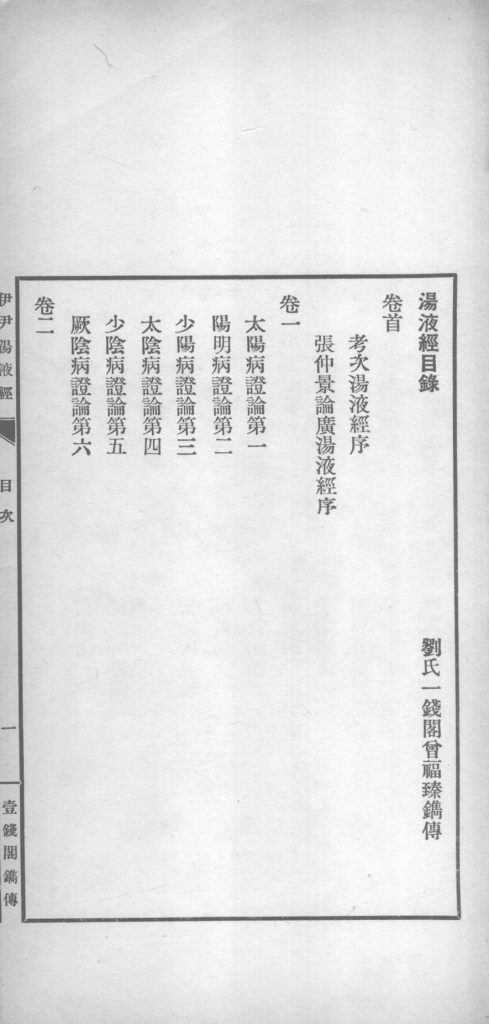 湯液經目錄
劉氏一錢閣曾福臻鐫傳
卷首
考次湯液經序
張仲景論廣湯液經序
卷一
太陽病證論第一
陽明病證論第二
少陽病證論第三
太陰病證論第四
少陰病證論第五
厥陰病證論第六
卷二
伊尹湯液經
目次
一
壹錢閣鐫傳